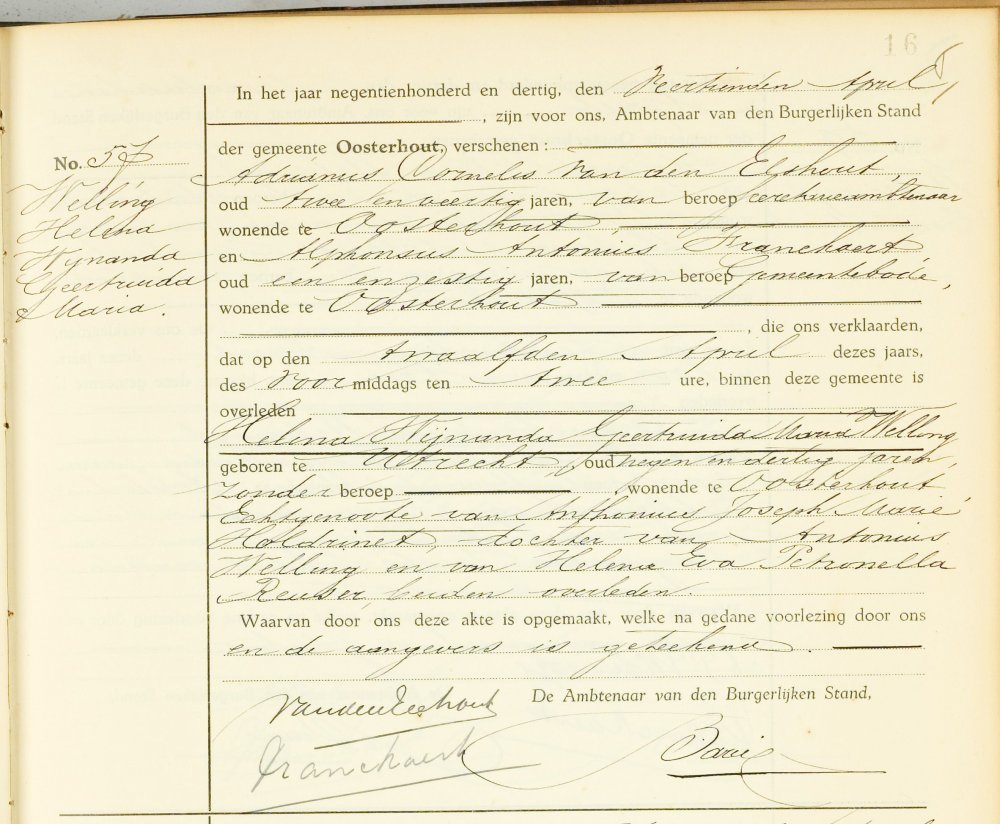 16
In het jaar negentienhonderd en dertig, den Veertienden April
, zijn voor ons, Ambtenaar van den Burgerlijken Stand
der gemeente Oosterhout, verschenen :
No. 57
Welling
Helena
Wijnanda
Geertruida
Maria.
Adrianus Cornelis van den Elshout,
oud twee en veertig jaren, van beroep
wonende te Oosterhout,
en Alphonsus Antonius Franckaert
oud een en zestig jaren, van beroep Gemeentebode,
wonende te Oosterhout
, die ons verklaarden,
dat op den twaalfden April dezes jaars,
des Voor middags ten twee ure, binnen deze gemeente is
overleden
Helena Wijnanda Geertruida Maria Welling
geboren te Utrecht, oud negen en dertig jaren,
zonder beroep , wonende te Oosterhout
Echtgenoote van Anthonius Joseph Marie
Holdrinet, dochter van Antonius
Welling en van Helena Eva Petronella
Reuser, beiden overleden.
Waarvan door ons deze akte is opgemaakt, welke na gedane voorlezing door ons
en de aangevers is geteekend.
De Ambtenaar van den Burgerlijken Stand,
van den Elshout
Franckaert